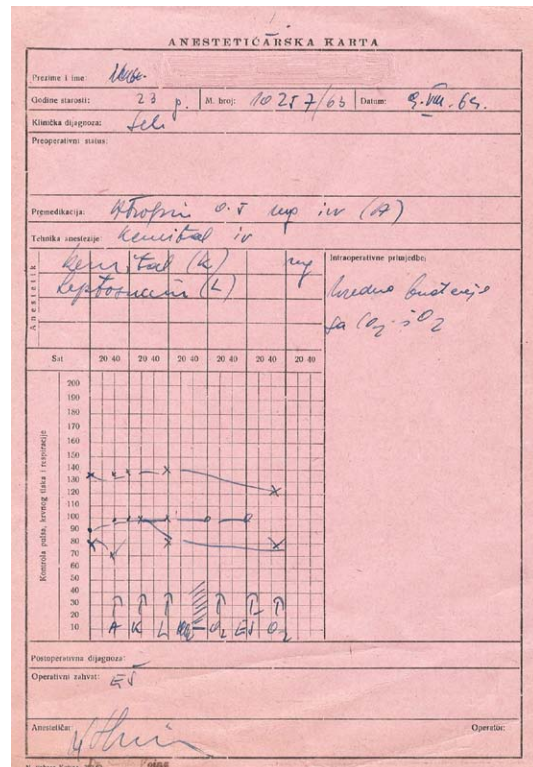 ANESTETIČARSKA KARTA
Prezime i ime:
Godine starosti: 23 M. broj: 10257/63 Datum: 9. VIII. 63.
Klinička dijagnoza: Sch
Preoperativni status:
Premedikacija: Atropin 0.5 mg iv (A)
Tehnika anestezije: Kemital iv
Anestetik
Kemital (K) mg
Leptosuccin (L)
Intraoperativne primjedbe:
uredno buđenje
sa CO2 i O2
Sat 20 40 20 40 20 40 20 40 20 40 20 40
Kontrola pulsa, krvnog tlaka i respiracije
200
190
180
170
160
150
140
130
120
110
100
90
80
70
60
50
40
30
20
10
A K L O2 EŠ O2
Postoperativna dijagnoza:
Operativni zahvat: EŠ
Anestetičar: Operatör: